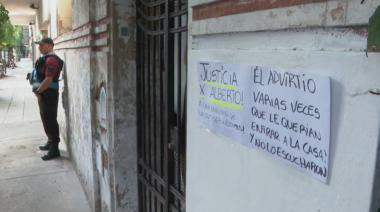 JUSTICIA
X ALBERTO!
EL ADVIRTIO
VARIAS VECES
QUE LE QUERIAN
ENTRAR A LA CASA!
Y NO LO ESCUCHARON